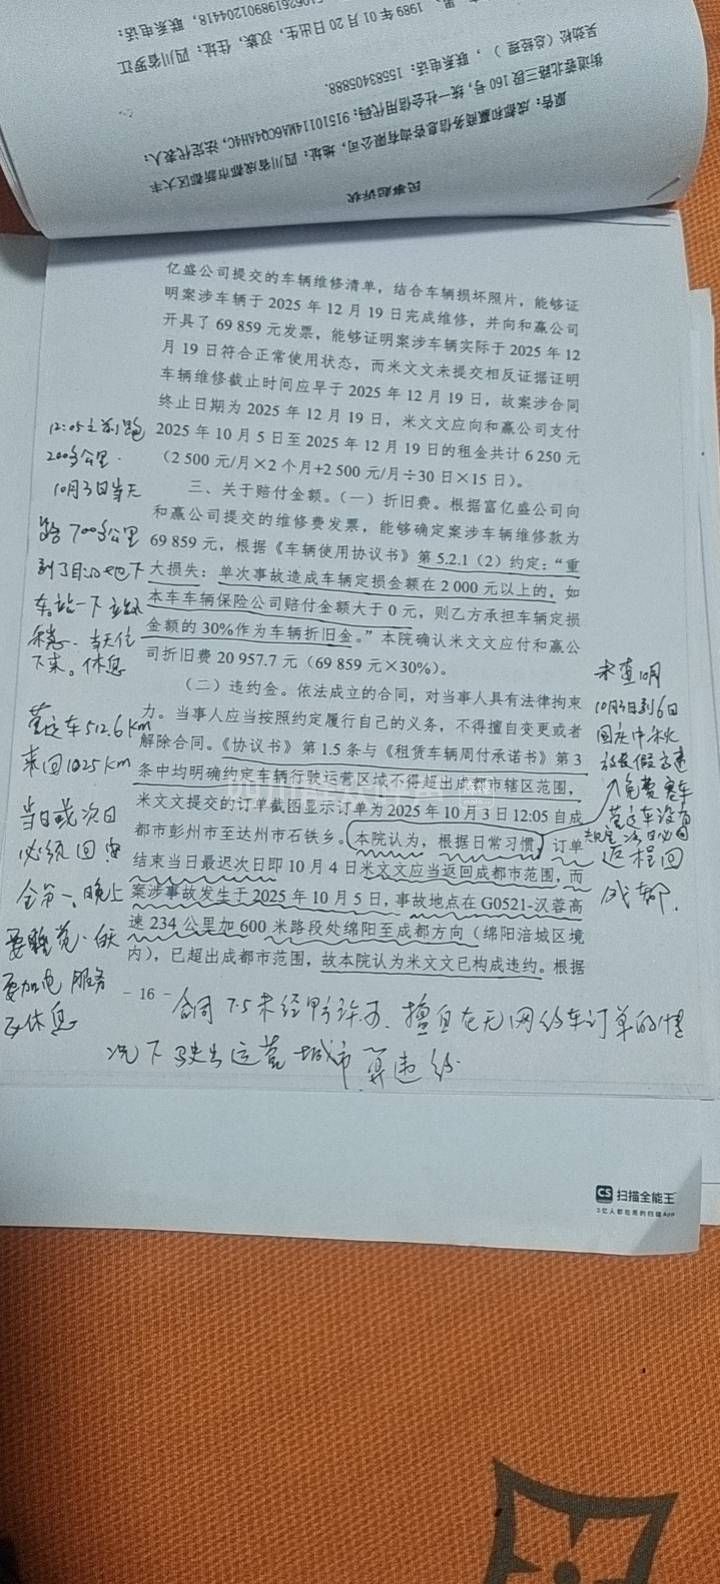 民事起诉状
原告：成都和赢商务信息咨询有限公司，地址：四川省成都市新都区大丰
街道蓉北路三段160号，统一社会信用代码：91510114MA6CQ4AH4C，法定代表人：
吴劲松（总经理），联系电话：15583405888.
1989年01月20日出生，汉族，住址：四川省罗江
198901204418，联系电话：
亿盛公司提交的车辆维修清单，结合车辆损坏照片，能够证
明案涉车辆于2025年12月19日完成维修，并向和赢公司
开具了69 859元发票，能够证明案涉车辆实际于2025年12
月19日符合正常使用状态，而米文文未提交相反证据证明
车辆维修截止时间应早于2025年12月19日，故案涉合同
终止日期为2025年12月19日，米文文应向和赢公司支付
2025年10月5日至2025年12月19日的租金共计6 250元
（2 500元/月×2个月+2 500元/月÷30日×15日）。
三、关于赔付金额。（一）折旧费。根据富亿盛公司向
和赢公司提交的维修费发票，能够确定案涉车辆维修款为
69 859元，根据《车辆使用协议书》第5.2.1（2）约定：“重
大损失：单次事故造成车辆定损金额在2 000元以上的，如
本车车辆保险公司赔付金额大于0元，则乙方承担车辆定损
金额的30%作为车辆折旧金。”本院确认米文文应付和赢公
司折旧费20 957.7元（69 859元×30%）。
（二）违约金。依法成立的合同，对当事人具有法律拘束
力。当事人应当按照约定履行自己的义务，不得擅自变更或者
解除合同。《协议书》第1.5条与《租赁车辆周付承诺书》第3
条中均明确约定车辆行驶运营区域不得超出成都市辖区范围，
米文文提交的订单截图显示订单为2025年10月3日12:05自成
都市彭州市至达州市石铁乡。本院认为，根据日常习惯，订单
结束当日最迟次日即10月4日米文文应当返回成都市范围，而
案涉事故发生于2025年10月5日，事故地点在G0521-汉蓉高
速234公里加600米路段处绵阳至成都方向（绵阳涪城区境
内），已超出成都市范围，故本院认为米文文已构成违约。根据
- 16 -
12:05之前跑
200多公里.
10月3日当天
跑700多公里
到了目的地下
车站一下
当天住
下来。休息
营运车512.6Km
来回1025Km
当日或次日
必须回
安全第一、晚上
要 白天
要加电 服务
区休息
10月3日到6日
国庆中秋
放长假高速
免费 赛车
营运车没有
规定次日必回
返程回
成都.
合同7.5未经甲方许可、擅自在无网约车订单的情
况下驶出运营城市算违约
扫描全能王
3亿人都在用的扫描App